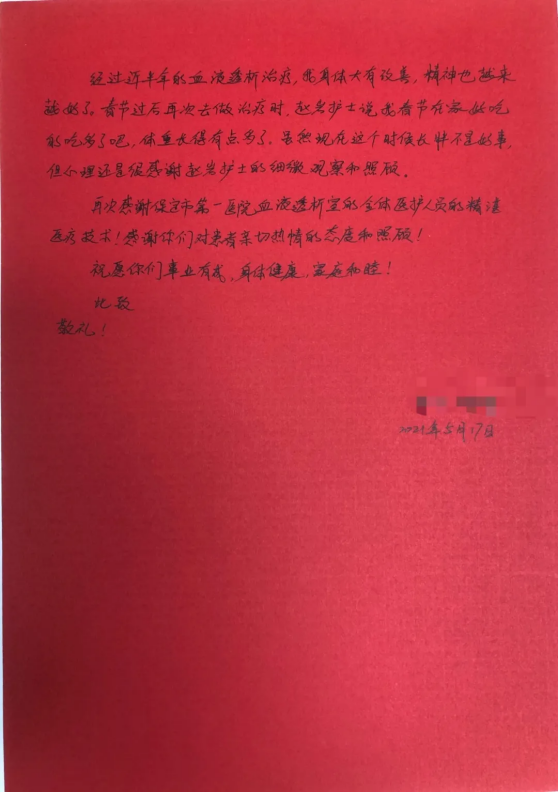 经过近半年的血液透析治疗，我身体大有改善，精神也越来
越好了。春节过后再次去做治疗时，赵岩护士说我春节在家好吃
的吃多了吧，体重长得有点多了。虽然现在这个时候长胖不是好事，
但心理还是很感谢赵岩护士的细微观察和照顾。
再次感谢保定市第一医院血液透析室的全体医护人员的精湛
医疗技术！感谢你们对患者亲切热情的态度和照顾！
祝愿你们事业有成，身体健康，家庭和睦！
此致
敬礼！
2021年5月17日